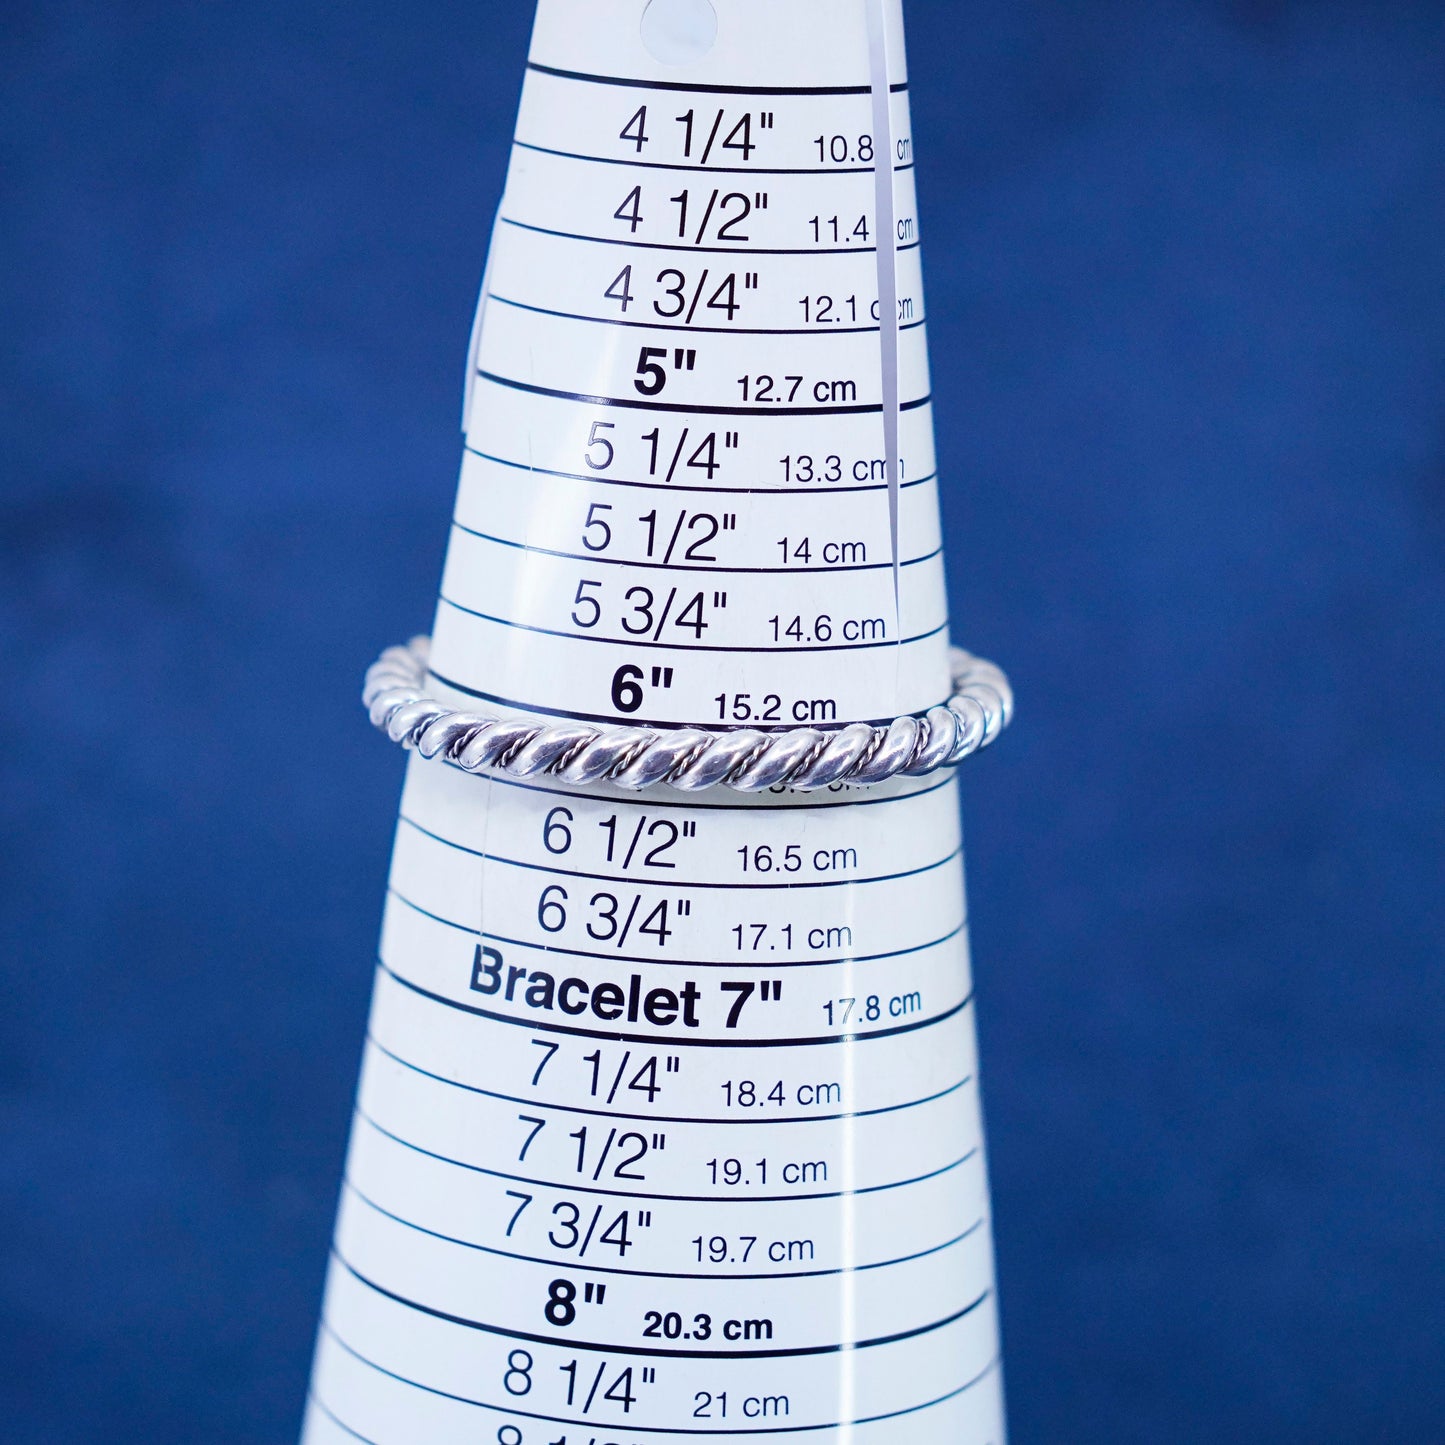 4 1/4" 10.8 cm
4 1/2" 11.4 cm
4 3/4" 12.1 cm
5" 12.7 cm
5 1/4" 13.3 cm
5 1/2" 14 cm
5 3/4" 14.6 cm
6" 15.2 cm
6 1/2" 16.5 cm
6 3/4" 17.1 cm
Bracelet 7" 17.8 cm
7 1/4" 18.4 cm
7 1/2" 19.1 cm
7 3/4" 19.7 cm
8" 20.3 cm
8 1/4" 21 cm